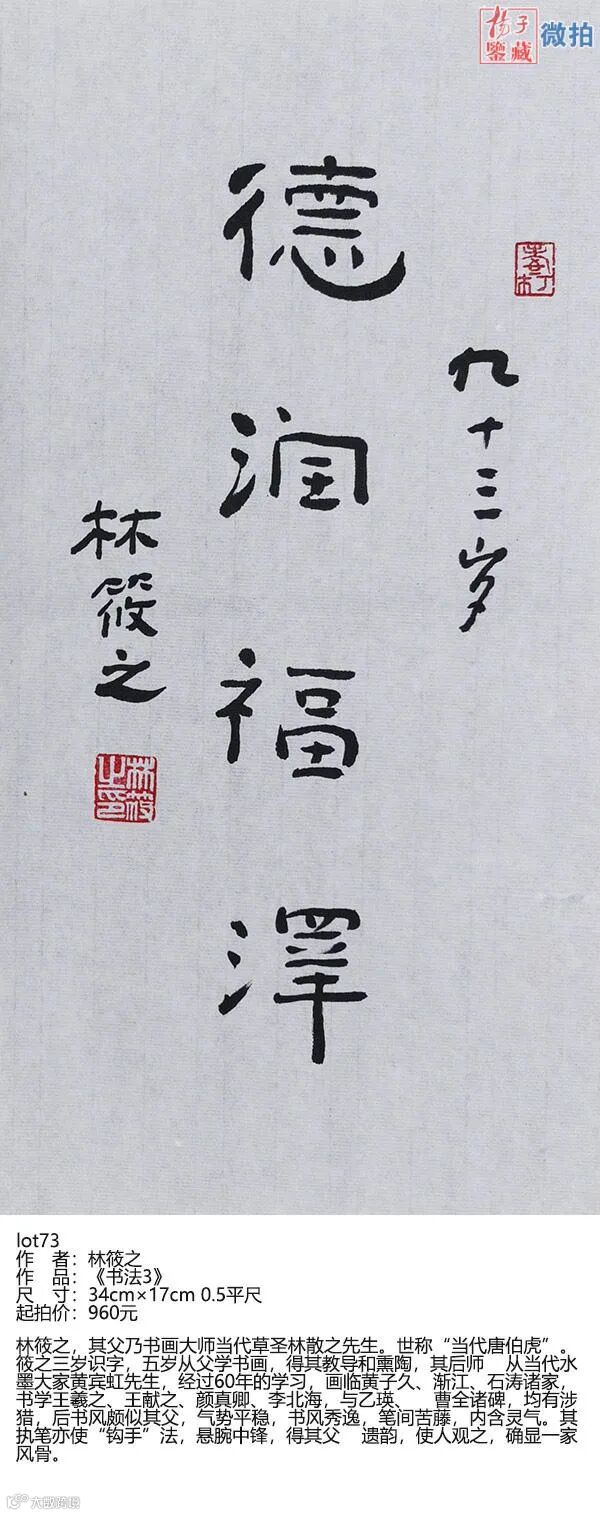 揚子
鑒藏
微拍
九十三岁
德润福泽
林筱之
林筱
之印
lot73
作 者：林筱之
作 品：《书法3》
尺 寸：34cm×17cm 0.5平尺
起拍价：960元
林筱之，其父乃书画大师当代草圣林散之先生。世称“当代唐伯虎”。
筱之三岁识字，五岁从父学书画，得其教导和熏陶，其后师 从当代水
墨大家黄宾虹先生，经过60年的学习，画临黄子久、渐江、石涛诸家，
书学王羲之、王献之、颜真卿、李北海，与乙瑛、 曹全诸碑，均有涉
猎，后书风颇似其父，气势平稳，书风秀逸，笔间苦藤，内含灵气。其
执笔亦使“钩手”法，悬腕中锋，得其父 遗韵，使人观之，确显一家
风骨。
大数跨境